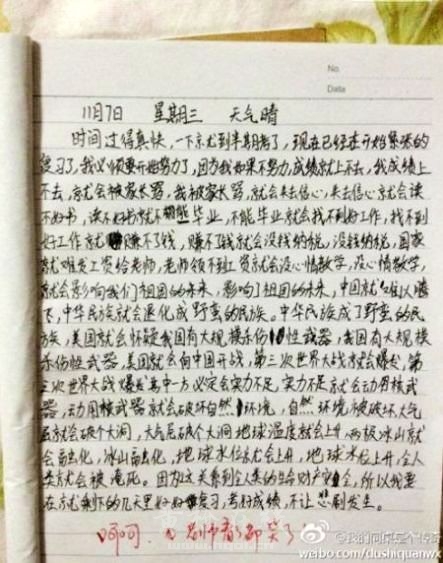 No.
Date
11月7日 星期三 天气晴
时间过得真快,一下京尤到半期考了,现在已经在开始紧张的
复习了,我必须要开始努力了,因为我如果不努力,成绩就上不去,我成绩上
不去,就会被家长骂,我被家长骂,就会失去信心,失去信心就会读
不好书,读不好书就不能毕业,不能毕业就会找不到好工作,找不到
好工作就赚不了钱,赚不了钱就会没钱纳税,没钱纳税,国家
就难发工资给老师,老师领不到工资就会没心情教学,没心情教学,
就会影响我们祖国的未来,影响了祖国的未来,中国就难以腾
飞,中华民族就会退化成野蛮的民族。中华民族成了野蛮的民
族,美国就会怀疑我国有大规模杀伤性武器,我国有大规模
杀伤性武器,美国就会向中国开战,第三次世界大战就会爆发,第
三次世界大战爆发其中一方必定会实力不足,实力不足就会动用核武
器,动用核武器就会破坏自然环境,自然环境被破坏大气
层就会破个大洞,大气层破个大洞地球温度就会上升,两极冰山就
会融化,冰山融化,地球水位就会上升,地球水位上升,全人
类就会被淹死。因为这关系到全人类的生命财产安全,所以我要
在就剩下的几天里好好复习,考好成绩,不让悲剧发生。
呵呵,老师看了都笑了!
weibo.com/dushiquanwx